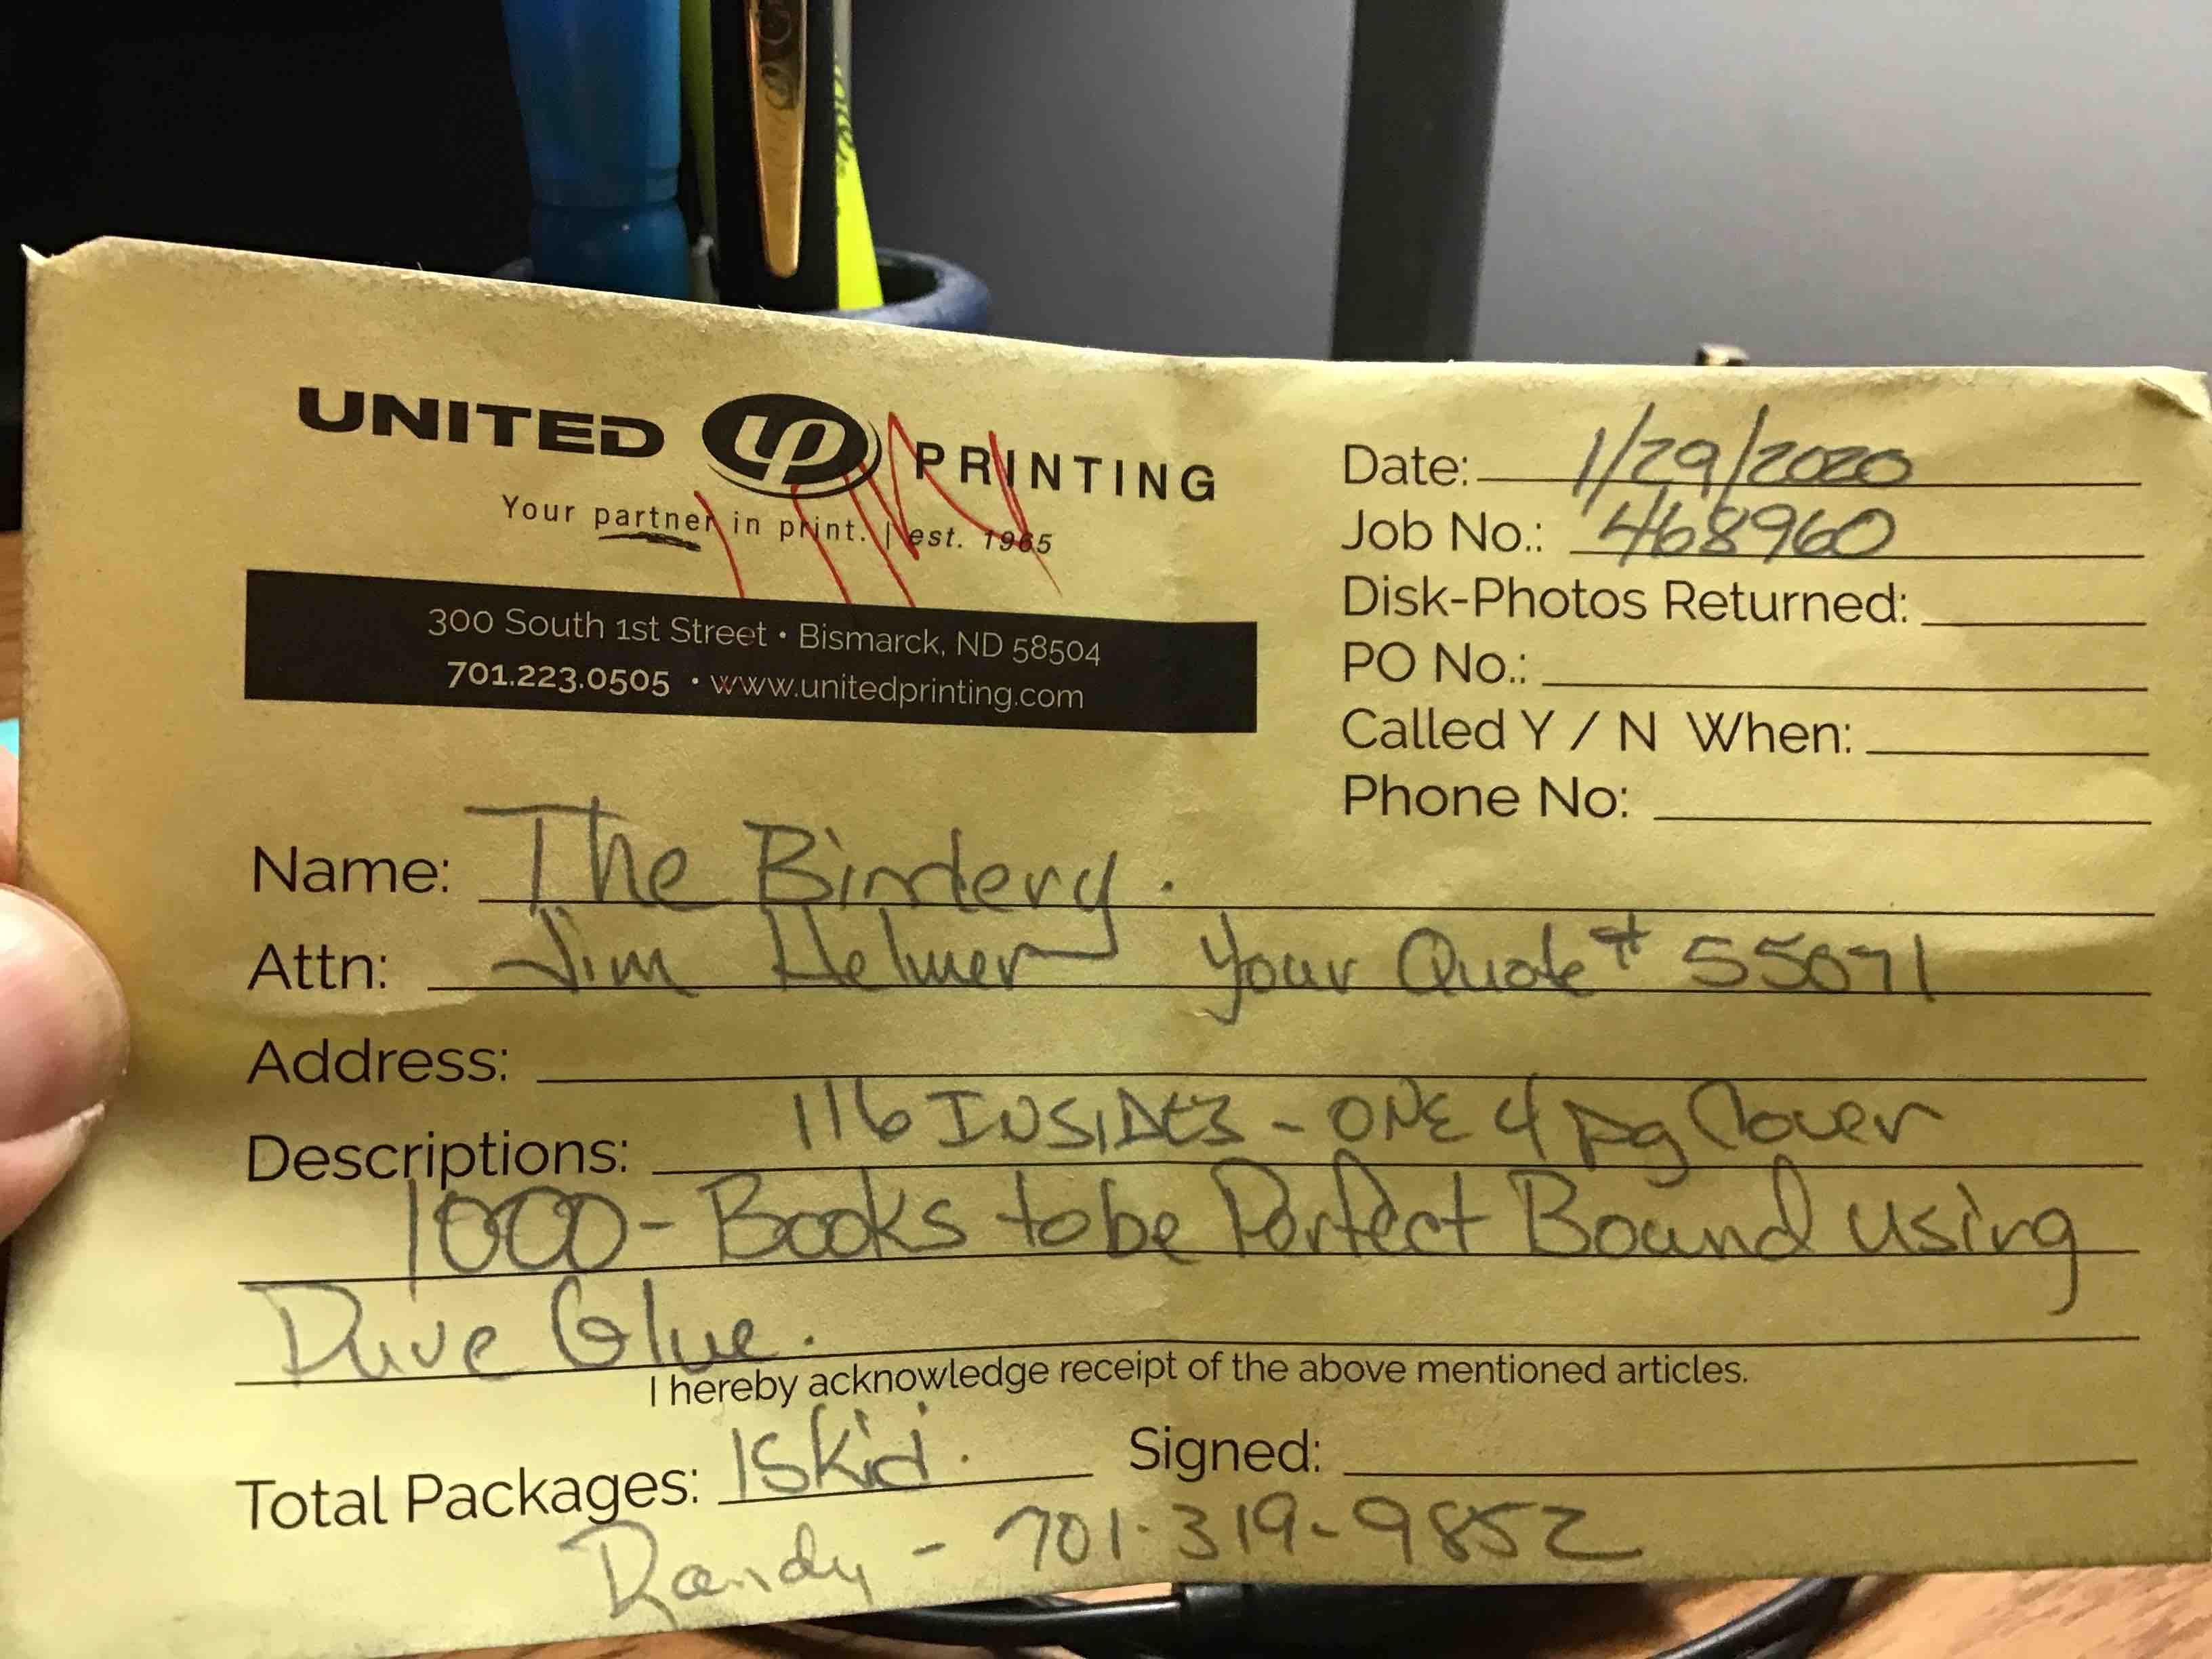 UNITED UP PRINTING
Your partner in print. | est. 1965
300 South 1st Street • Bismarck, ND 58504
701.223.0505 • www.unitedprinting.com
Date: 1/29/2020
Job No.: 468960
Disk-Photos Returned:
PO No.:
Called Y / N When:
Phone No:
Name: The Bindery.
Attn: Jim Helmer Your Quote # 55071
Address:
Descriptions: 116 INSIDES - ONE 4 pg Cover
1000 - Books to be Perfect Bound using
Glue.
I hereby acknowledge receipt of the above mentioned articles.
Total Packages: 1 Skid. Signed:
Randy - 701-319-9852